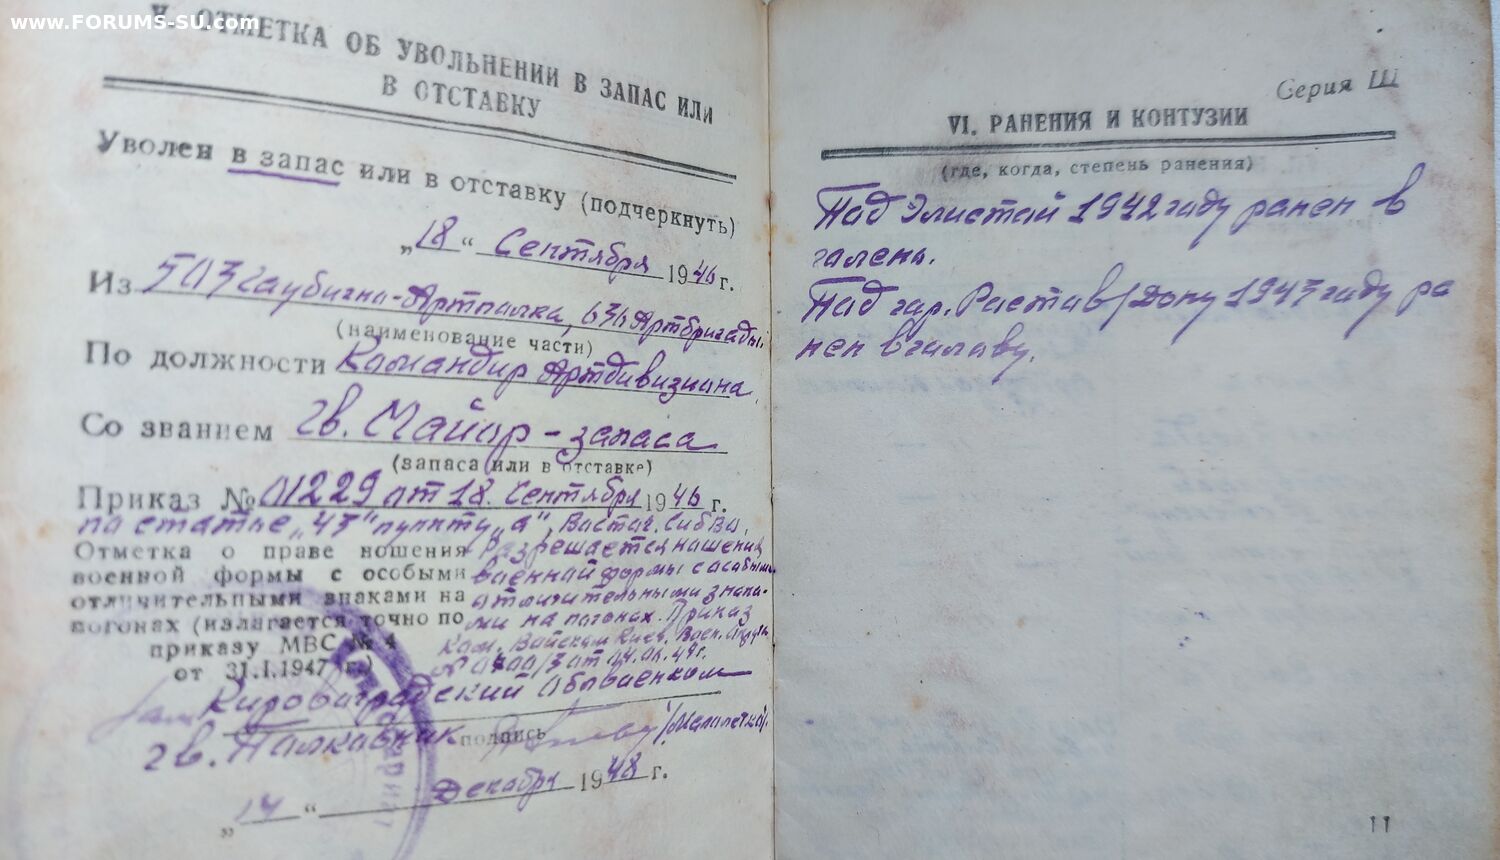 www.FORUMS-SU.com
V. ОТМЕТКА ОБ УВОЛЬНЕНИИ В ЗАПАС ИЛИ
В ОТСТАВКУ
Уволен в запас или в отставку (подчеркнуть)
„18“ Сентября 1946 г.
Из 503 Гаубично-Артполка, 63й Артбригады,
(наименование части)
По должности Командир Артдивизиона,
Со званием гв. Майор - запаса
(запаса или в отставке)
Приказ № 01229 от 18. Сентября 1946 г.
по статье „43“ пункту „а“,
Отметка о праве ношения
военной формы с особыми
отличительными знаками на
погонах (излагается точно по
приказу МВС № 4
от 31.I.1947 г.)
Разрешается нашение
военной формы с асабыми
атличительными знака-
ми на погонах. Приказ
Ком. Войскам Киев. Воен.
Кировоградский облвоенком
гв. Палкавник
подпись
„14“ Декабря 1948 г.
Серия Ш
VI. РАНЕНИЯ И КОНТУЗИИ
(где, когда, степень ранения)
Под Элистай 1942 году ранен в
галень.
Под гор. Растов/Дону 1943 году ра
нен в галаву.
11